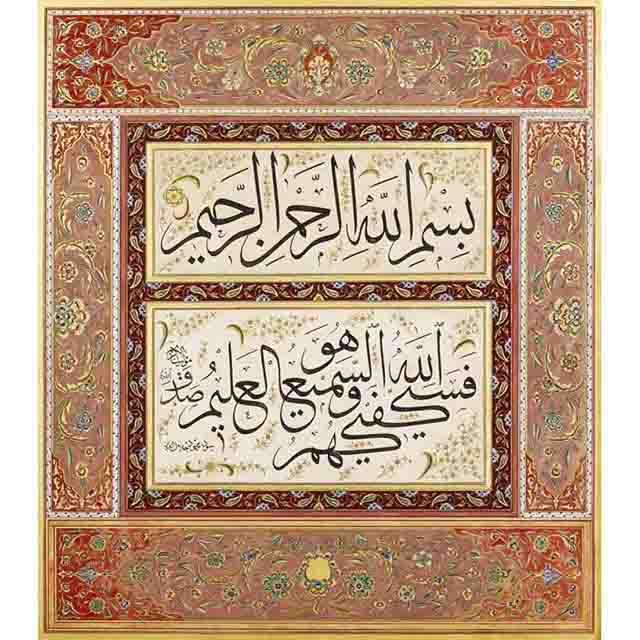 بِسْمِ اللّٰهِ الرَّحْمٰنِ الرَّحِيمِ
فَسَيَكْفِيكَهُمُ اللّٰهُ وَهُوَ السَّمِيعُ الْعَلِيمُ صدق